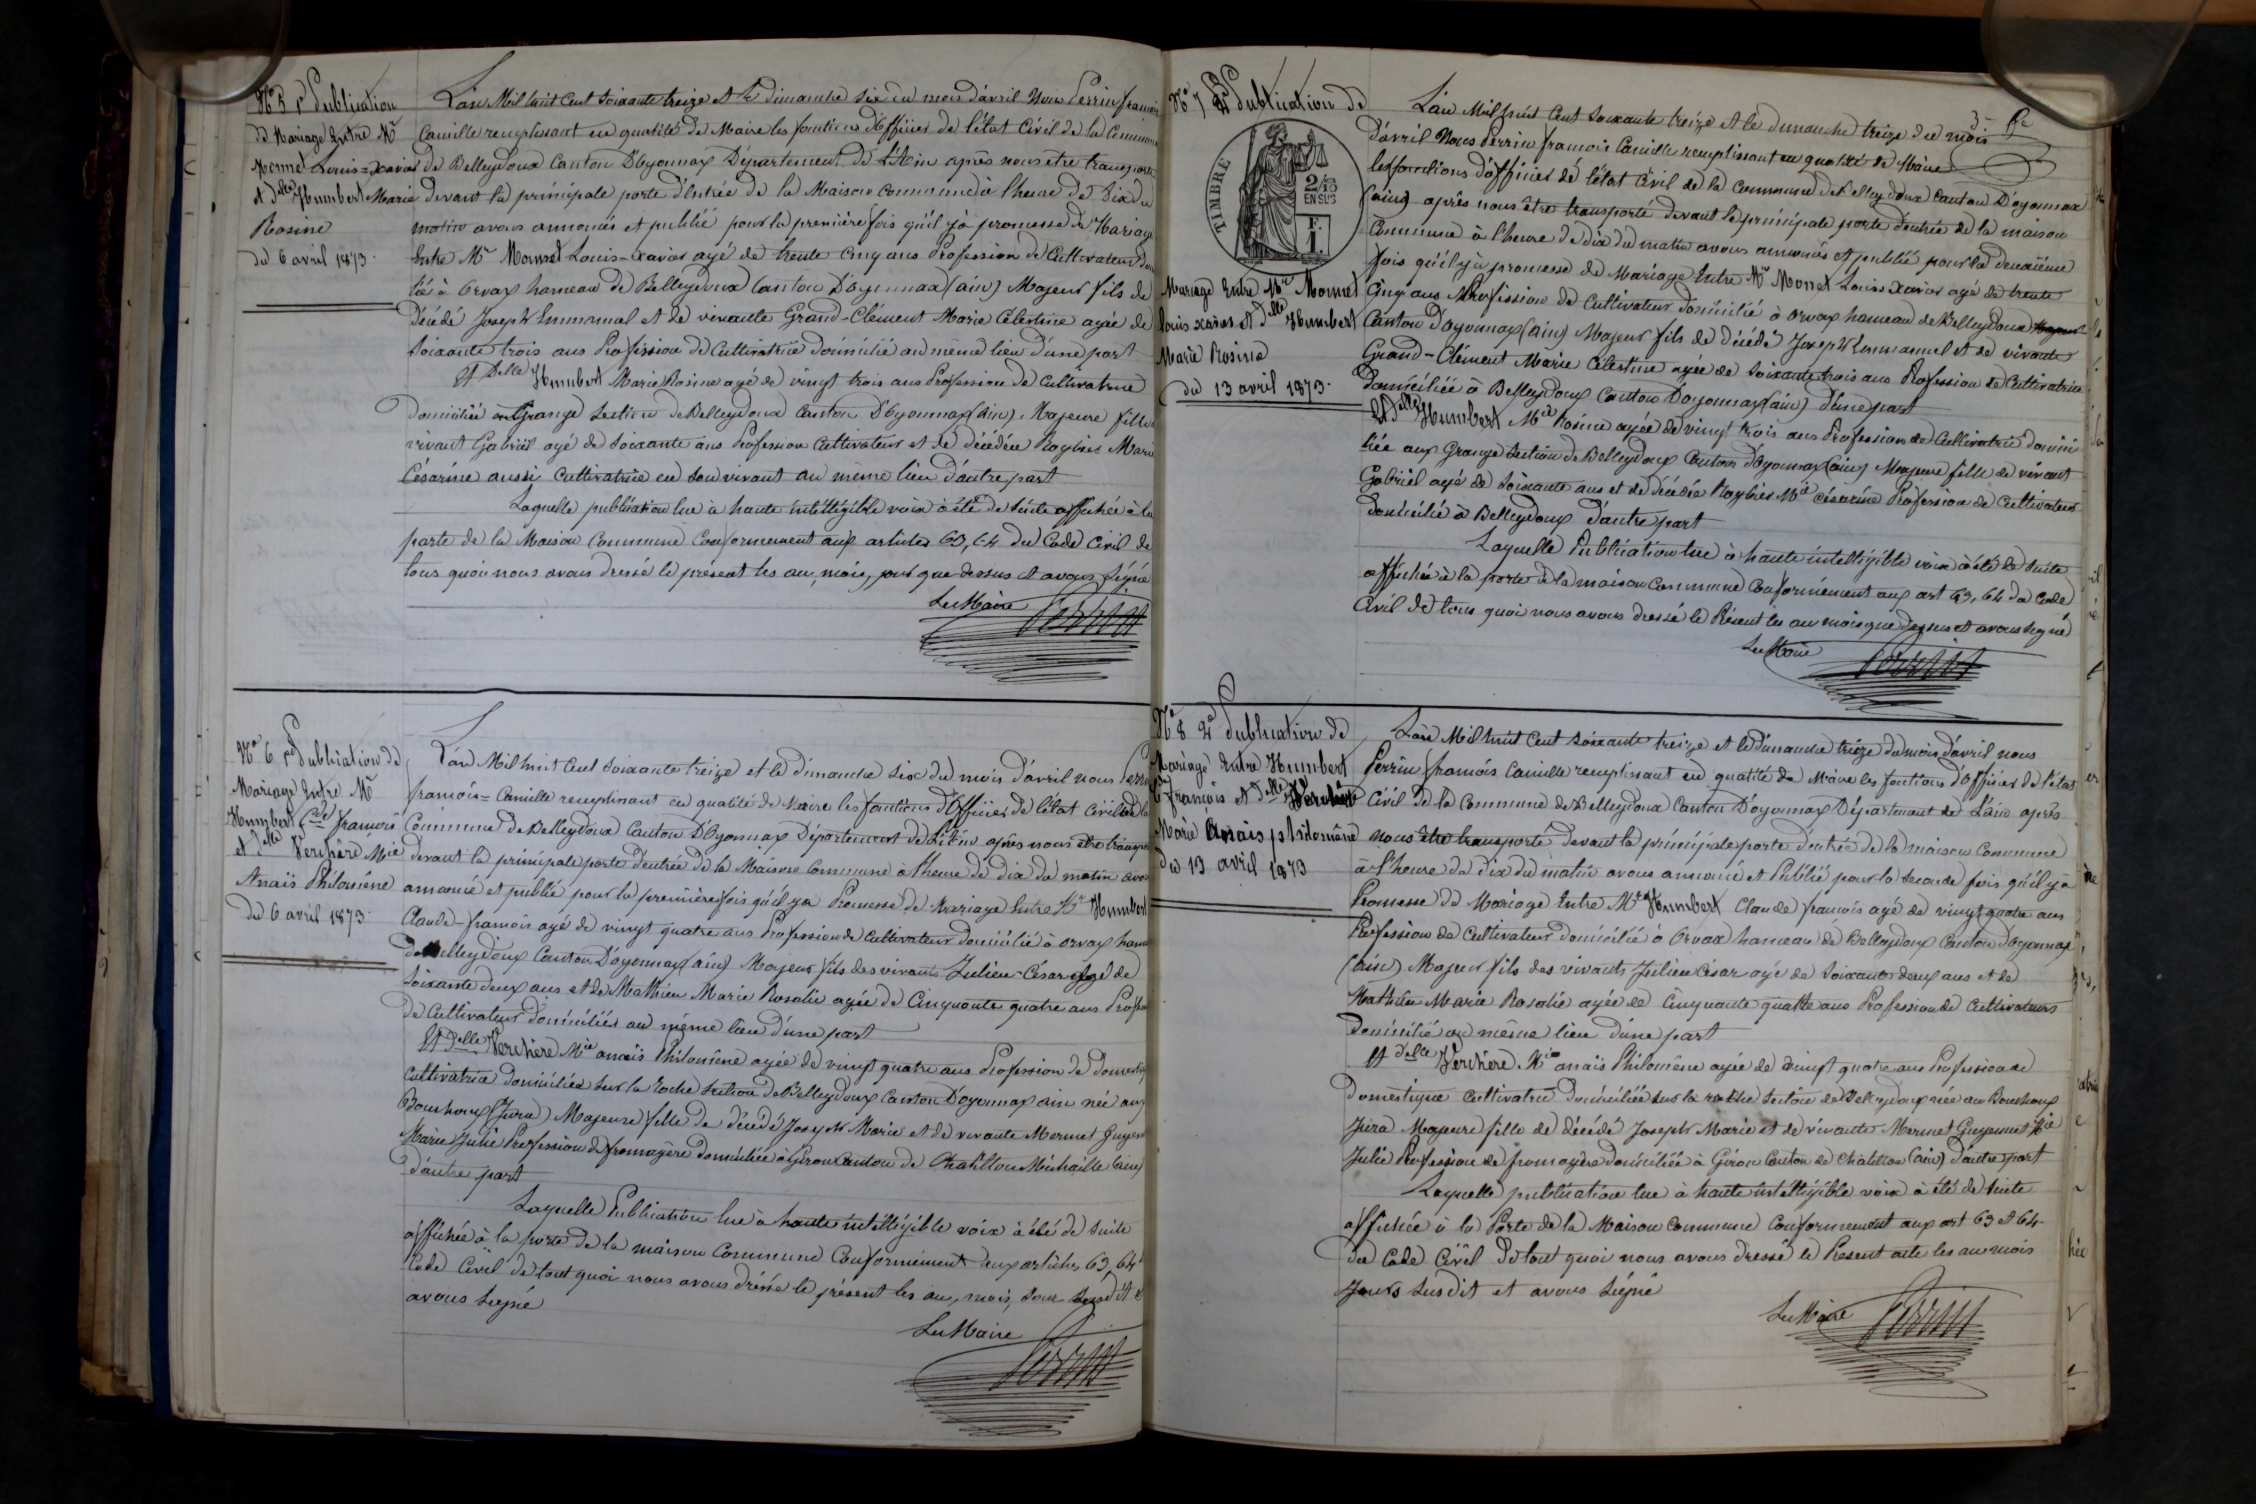 N° 5 1e Publication
de Mariage Entre Mr
Mermet Louis=xavier
et delle Humbert Marie
Rosine
du 6 avril 1873.
L'an Mil huit Cent Soixante treize et le dimanche Six du mois d'avril Nous Perrin françois
Camille remplissant en qualité de Maire les fonctions d'officier de l'état Civil de la Commune
de Belleydoux Canton D'Oyonnax Département de L'Ain après nous être transporté
devant la principale porte d'Entrée de la Maison Commune à l'heure de Dix du
matin avons annoncés et publié pour la première fois qu'il y à promesse de Mariage
Entre Mr Mermet Louis=xavier agé de trente Cinq ans Profession de Cultivateur
à Orvax hameau de Belleydoux Canton D'Oyonnax (ain) Majeur fils de
Décédé Joseph Emmanuel et de vivante Grand-Clément Marie Célestine agée de
Soixante trois ans Profession de Cultivatrice domicilié au même lieu d'une part
Et Delle Humbert Marie Rosine agé de vingt trois ans Profession de Cultivatrice
Domiciliée Grange Section de Belleydoux Canton D'Oyonnax (ain) Majeure fille
vivant Gabriel agé de Soixante ans Profession Cultivateur et de décédée Marie
Césarine aussi Cultivatrice en Son vivant au même lieu d'autre part
Laquelle publication lue à haute intelligible voix à été de Suite affichée à la
porte de la Maison Commune Conformement aux articles 63, 64 du Code Civil de
tous quoi nous avons dressé le présent les an, mois, que dessus et avons Signé
Le Maire
Perrin
N° 6 1e Publication de
Mariage Entre Mr
Humbert Cde françois
et delle Verchère Mie
Anaïs Philomène
du 6 avril 1873.
L'an Mil huit Cent Soixante treize et le dimanche Six du mois d'avril nous
françois=Camille remplissant en qualité de Maire les fonctions d'Officier de l'état Civil de la
Commune de Belleydoux Canton D'Oyonnax Département de L'Ain après nous être
devant la principale porte d'entrée de la Maison Commune à l'heure de dix du matin
annoncé et publié pour la première fois qu'il y a Promesse de Mariage Entre Mr Humbert
Claude-françois agé de vingt quatre ans Profession de Cultivateur domicilié à Orvax
de Belleydoux Canton D'Oyonnax (ain) Majeur fils des vivants Julien-César agé de
Soixante deux ans et de Mathieu Marie Rosalie agée de Cinquante quatre ans
de Cultivateur domiciliés au même lieu d'une part
Et Delle Verchère Mie anaïs Philomène agée de vingt quatre ans Profession de
Cultivatrice domiciliée Sur la roche Section de Belleydoux Canton D'Oyonnax ain née aux
Bouchoux (Jura) Majeure fille de décédé Joseph Marie et de vivante Mermet
Marie Julie Profession de fromagère domiciliée à Giron Canton de Chatillon Michaille (ain)
d'autre part
Laquelle Publication lue à haute intelligible voix à été de Suite
affichée à la porte de la maison Commune Conformément aux articles 63, 64
Code Civil de tout quoi nous avons dressé le présent les an, mois,
avons Signé
Le Maire
Perrin
N° 7 2e Publication de
TIMBRE
2/10
EN SUS
F.
1.
Mariage Entre Mr Mermet
Louis xavier et delle Humbert
Marie Rosine
du 13 avril 1873.
L'an Mil huit Cent Soixante treize et le dimanche treize du mois
d'avril Nous Perrin françois Camille remplissant en qualité de Maire
les fonctions d'officier de l'état Civil de la Commune de Belleydoux Canton D'Oyonnax
(ain) après nous être transporté devant la principale porte d'entrée de la maison
Commune à l'heure de dix du matin avons annoncés et publié pour la deuxième
fois qu'il y à promesse de Mariage Entre Mr Mermet Louis xavier agé de trente
Cinq ans Profession de Cultivateur domicilié à orvax hameau de Belleydoux
Canton D'Oyonnax (ain) Majeur fils de décédé Joseph Emmanuel et de vivante
Grand-Clément Marie Célestine agée de Soixante trois ans Profession de Cultivatrice
domiciliée à Belleydoux Canton D'Oyonnax (ain) d'une part
Et Delle Humbert Mie Rosine agée de vingt trois ans Profession de Cultivatrice domici
liée aux Grange Section de Belleydoux Canton D'Oyonnax (ain) Majeure fille de vivant
Gabriel agé de Soixante ans et de décédée Mie Césarine Profession de Cultivateur
domicilié à Belleydoux d'autre part
Laquelle Publication lue à haute intelligible voix à été de Suite
affichée à la porte de la maison Commune Conformément aux art 63, 64 du Code
Civil de tous quoi nous avons dressé le Présent les an mois que dessus et avons Signé
Le Maire
Perrin
N° 8 2e Publication de
Mariage Entre Humbert
Cde françois et delle Verchère
Marie Anaïs philomène
du 13 avril 1873
L'an Mil huit Cent Soixante treize et le dimanche treize du mois d'avril nous
Perrin françois Camille remplissant en qualité de Maire les fonctions d'Officier de l'état
Civil de la Commune de Belleydoux Canton D'Oyonnax Département de L'ain après
nous être transporté devant la principale porte d'entrée de la maison Commune
à l'heure de dix du matin avons annoncé et Publié pour la Seconde fois qu'il y a
Promesse de Mariage Entre Mr Humbert Claude françois agé de vingt quatre ans
Profession de Cultivateur domiciliée à Orvax hameau de Belleydoux Canton D'Oyonnax
(ain) Majeur fils des vivants Julien César agé de Soixante deux ans et de
Mathieu Marie Rosalie agée de Cinquante quatre ans Profession de Cultivateurs
domicilié au même lieu d'une part
Et delle Verchère Mie anaïs Philomène agée de vingt quatre ans Profession de
Domestique Cultivatrice domiciliée Sur la roche Section de Belleydoux née au Bouchoux
Jura Majeure fille de décédé Joseph Marie et de vivante Mermet Guyennet Mie
Julie Profession de fromagère domiciliée à Giron Canton de Chatillon (ain) d'autre part
Laquelle publication lue à haute intelligible voix à été de Suite
affichée à la Porte de la Maison Commune Conformement aux art 63 et 64
du Code Civil De tout quoi nous avons dressé le Présent acte les an mois
Jours Susdit et avons Signé
Le Maire
Perrin